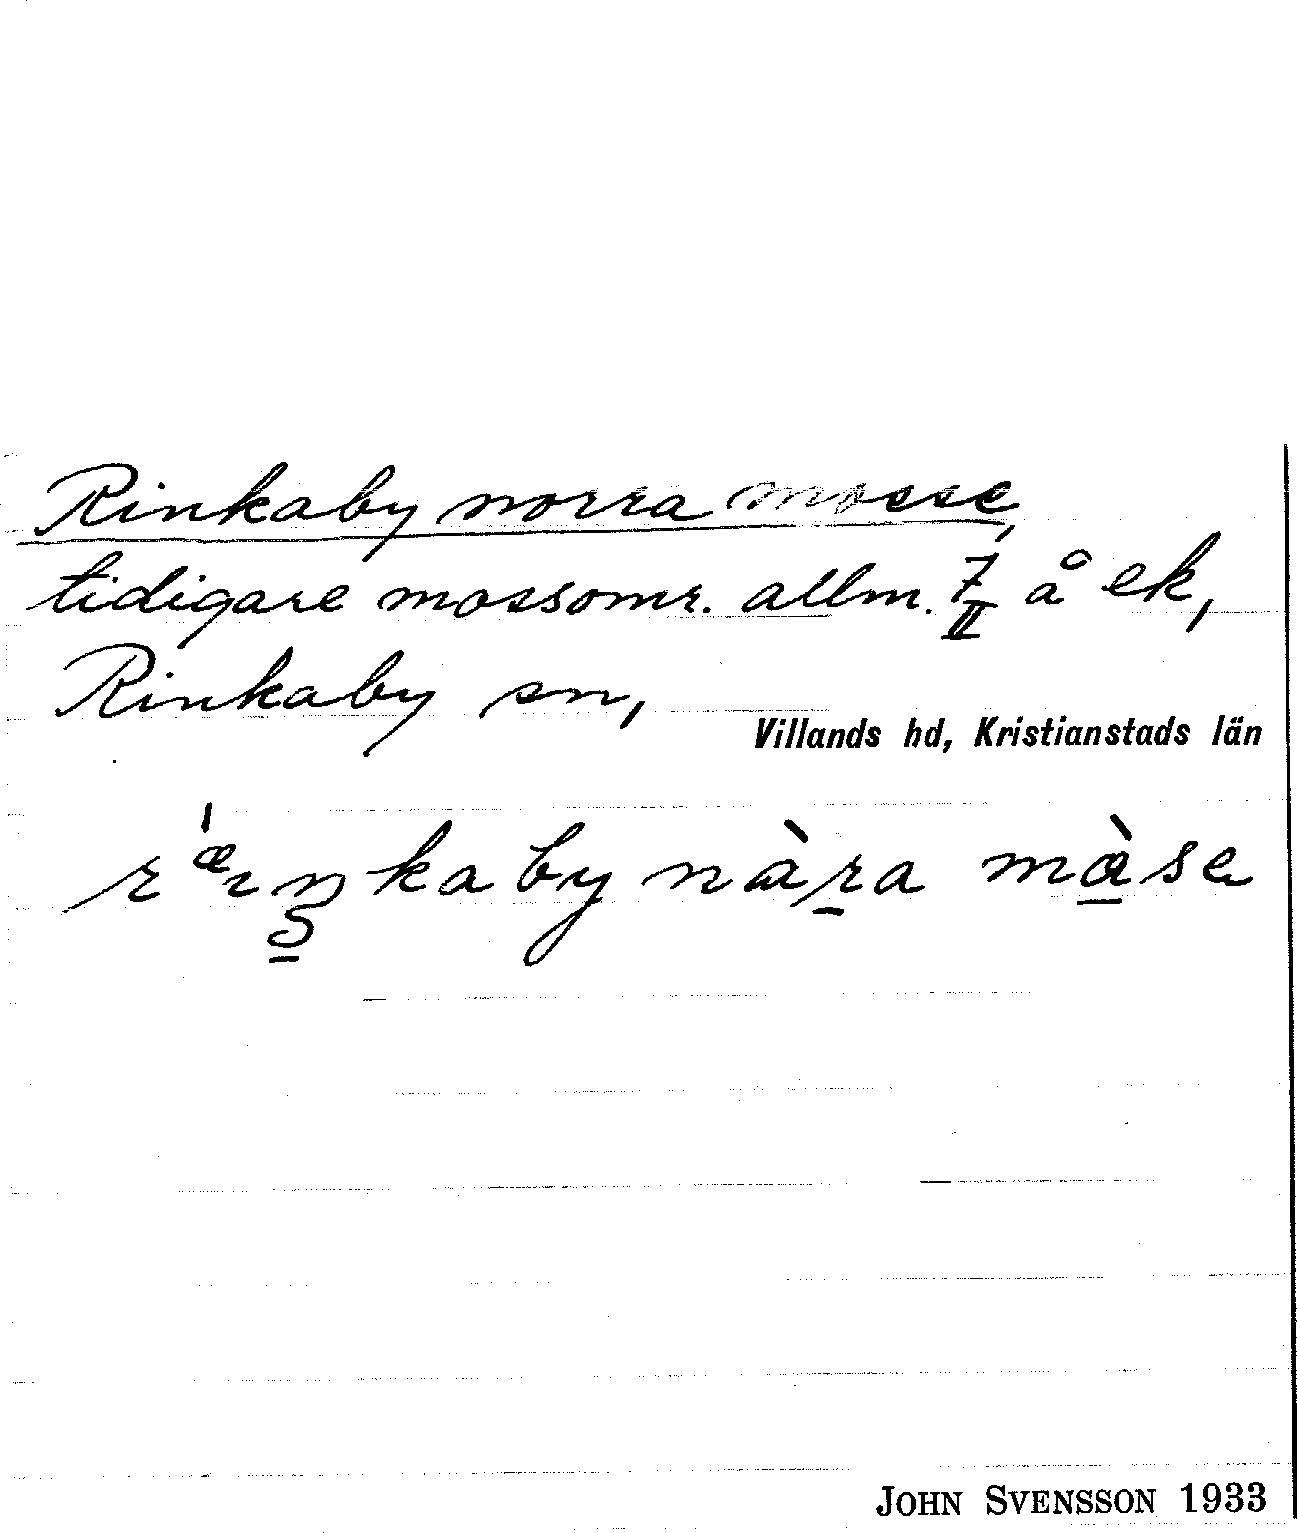 Rinkaby norra mosse,
tidigare mossomr. allm. 7/II å ek,
Rinkaby sn,
Villands hd, Kristianstads län
nàra màse
JOHN SVENSSON 1933